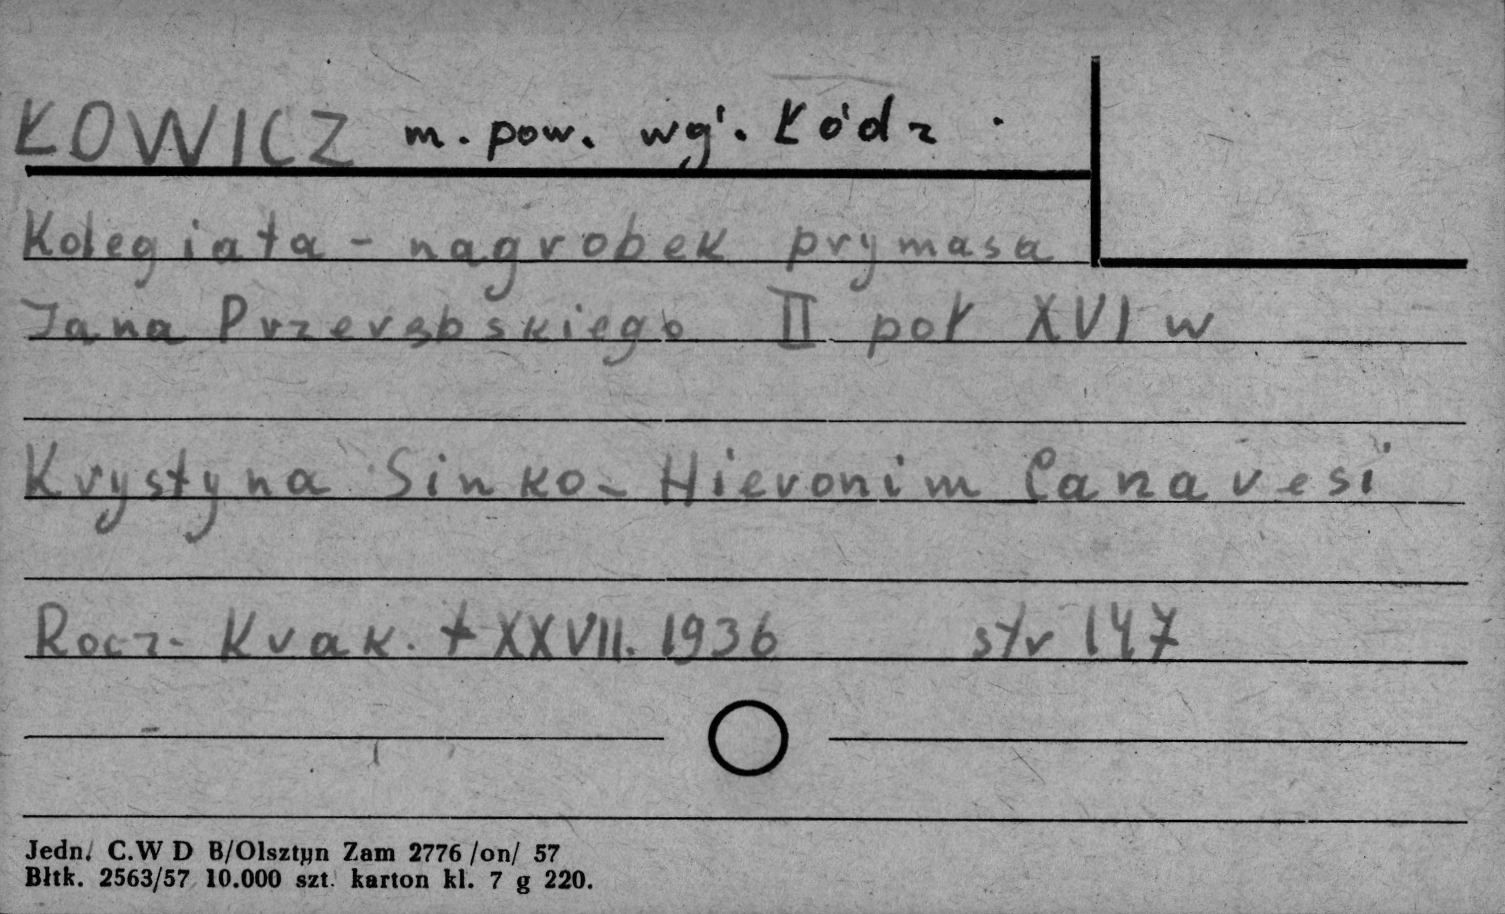 ŁOWICZ m. pow. wg. Łódz.
Kolegiata - nagrobek prymasa
Jana Przerębskiego II poł XVI w
Krystyna Sinko - Hieronim Canavesi
Rocz- Krak. t XXVII. 1936 str 147
Jedn. C.W D B/Olsztyn Zam 2776 /on/ 57
Błtk. 2563/57 10.000 szt. karton kl. 7 g 220.